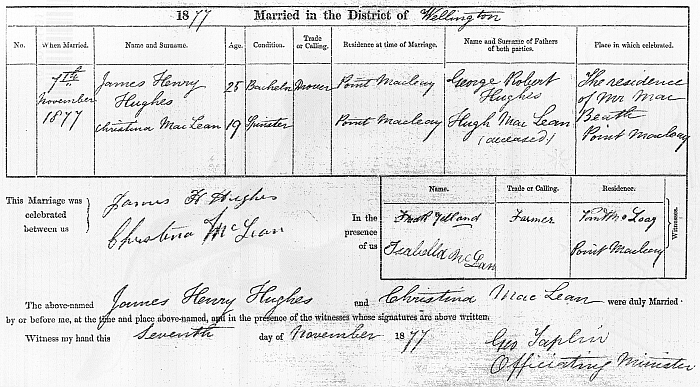 1877 Married in the District of Wellington
No. When Married. Name and Surname. Age. Condition. Trade or Calling. Residence at time of Marriage. Name and Surname of Fathers of both parties. Place in which celebrated.
7th November 1877
James Henry Hughes 25 Bachelor Drover Point Macleay George Robert Hughes
Christina MacLean 19 Spinster Point Macleay Hugh MacLean (deceased)
The residence of Mr Mac Beath Point Macleay
This Marriage was celebrated between us
James H Hughes
Christina McLean
In the presence of us
Name. Trade or Calling. Residence. Witnesses.
Farmer
Isabella McLean Point Macleay
The above-named James Henry Hughes and Christina MacLean were duly Married
by or before me, at the time and place above-named, and in the presence of the witnesses whose signatures are above written.
Witness my hand this Seventh day of November 1877
Geo Taplin
Officiating Minister